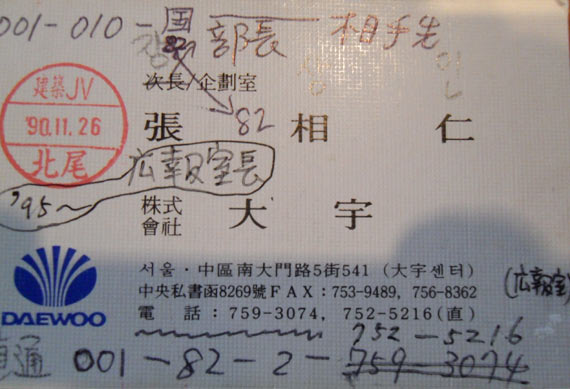 001-010-国82
部長 相手先
次長/企劃室
建築JV
'90.11.26
北尾
장 상 인
82
張 相 仁
広報室長
'95~
株式會社 大宇
DAEWOO
서울·中區南大門路5街541 (大宇센터)
中央私書函8269號 FAX:753-9489, 756-8362
(広報室)
電 話:759-3074, 752-5216(直)
752-5216
直通 001-82-2-759-3074